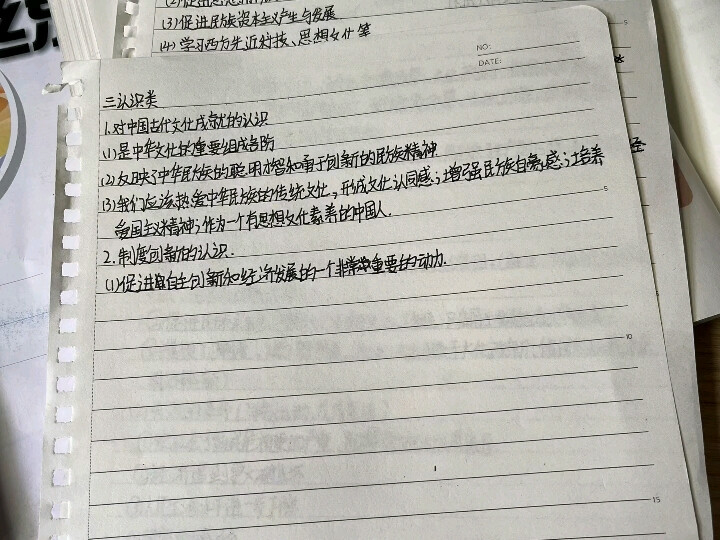 (3)促进民族资本主义产生与发展
(4)学习西方先进科技、思想文化等
NO:
DATE:
三认识类
1.对中国古代文化成就的认识
(1)是中华文化的重要组成部防
(2)反映了中华民族的聪明才智和勇于创新的民族精神
(3)我们应该热爱中华民族的传统文化,形成文化认同感;增强民族自豪感;培养
爱国主义精神;作为一个有思想文化素养的中国人.
5
2.制度创新的认识.
(1)促进自主创新和经济发展的一个非常重要的动力.
10
15